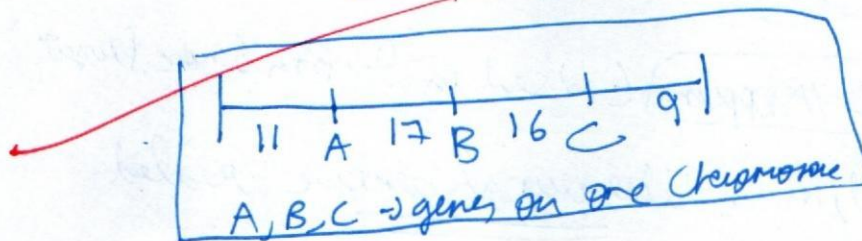 11 A 17 B 16 C 9
A, B, C → genes on one Chromosome